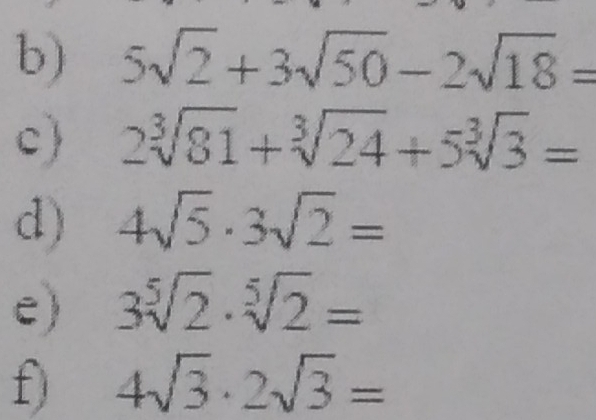 b) 5√2 + 3√50 − 2√18 =
c) 2∛81 + ∛24 + 5∛3 =
d) 4√5 · 3√2 =
e) 3⁵√2 · ⁵√2 =
f) 4√3 · 2√3 =